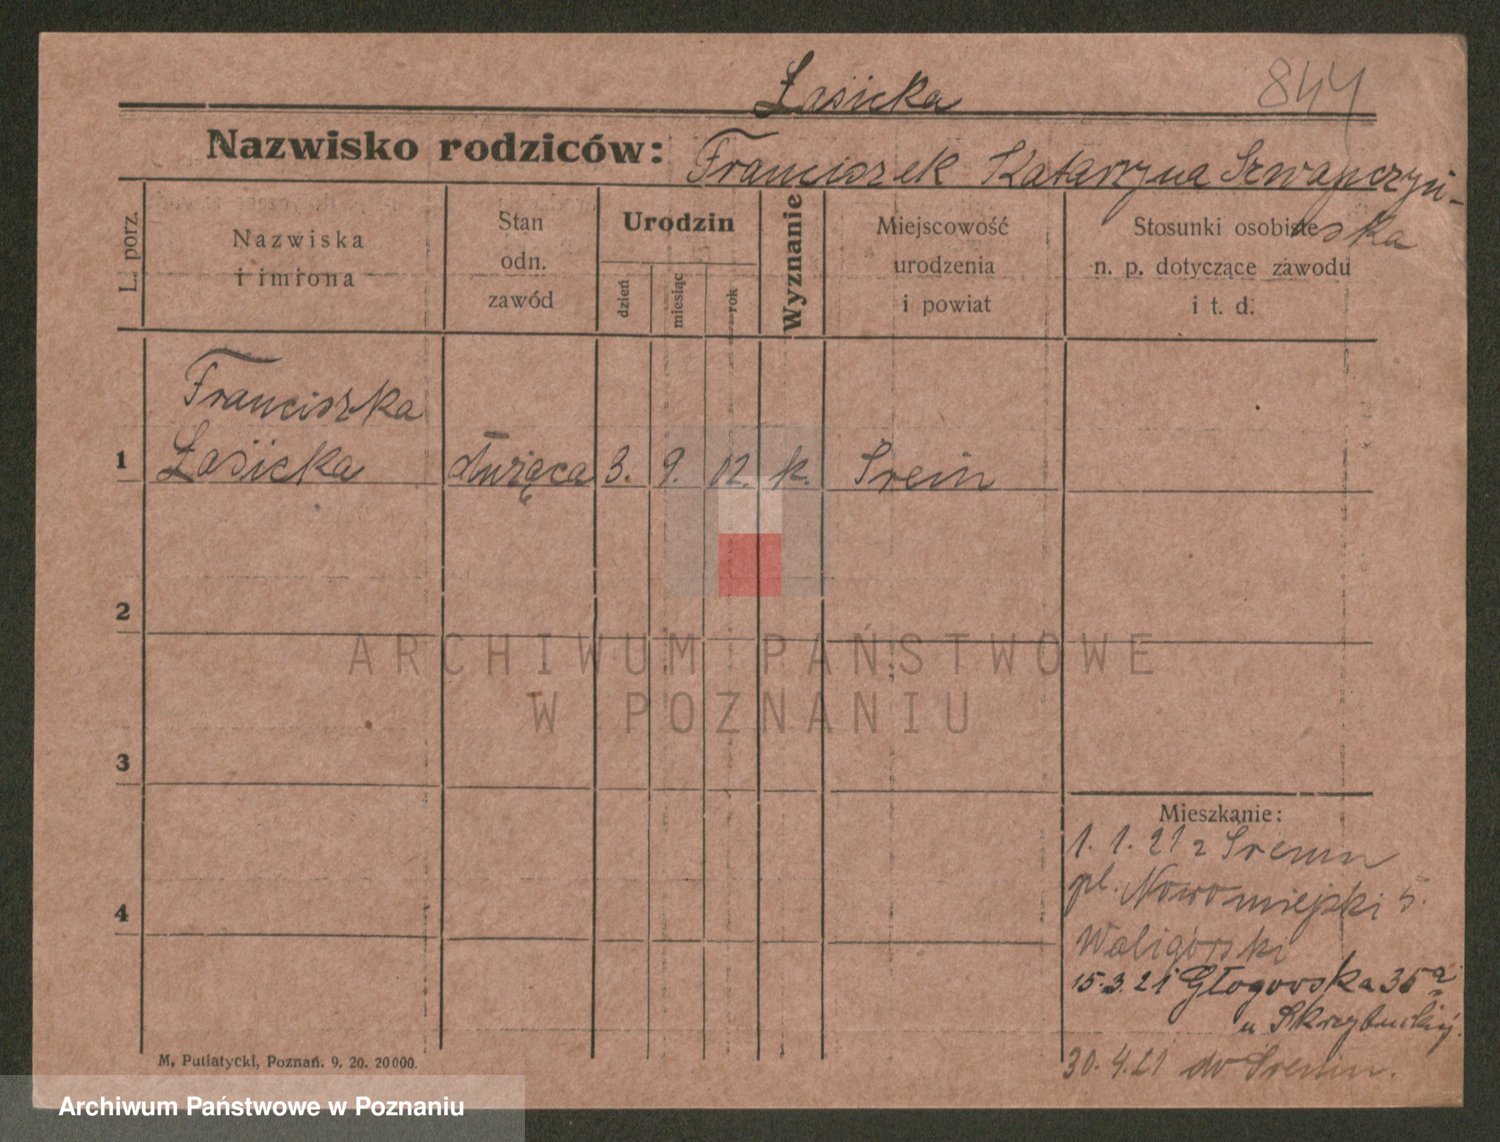 Łasicka 844
Nazwisko rodziców: Franciszek Katarzyna Szwapczyń-
ska
L. porz.
Nazwiska
i imiona
Stan
odn.
zawód
Urodzin
dzień
miesiąc
rok
Wyznanie
Miejscowość
urodzenia
i powiat
Stosunki osobiste
n. p. dotyczące zawodu
i t. d.
Franciszka
1 Łasicka służąca 3. 9. 02. k. Śrem
2
3
4
Mieszkanie:
1. 1. 21 z Śremu
pl. Nowomiejski 5.
Waligórski
15.3.21 Głogowska 35a
u
30.4.21 do Śremu.
M. Putiatycki, Poznań. 9. 20. 20000.
ARCHIWUM PAŃSTWOWE
W POZNANIU
Archiwum Państwowe w Poznaniu